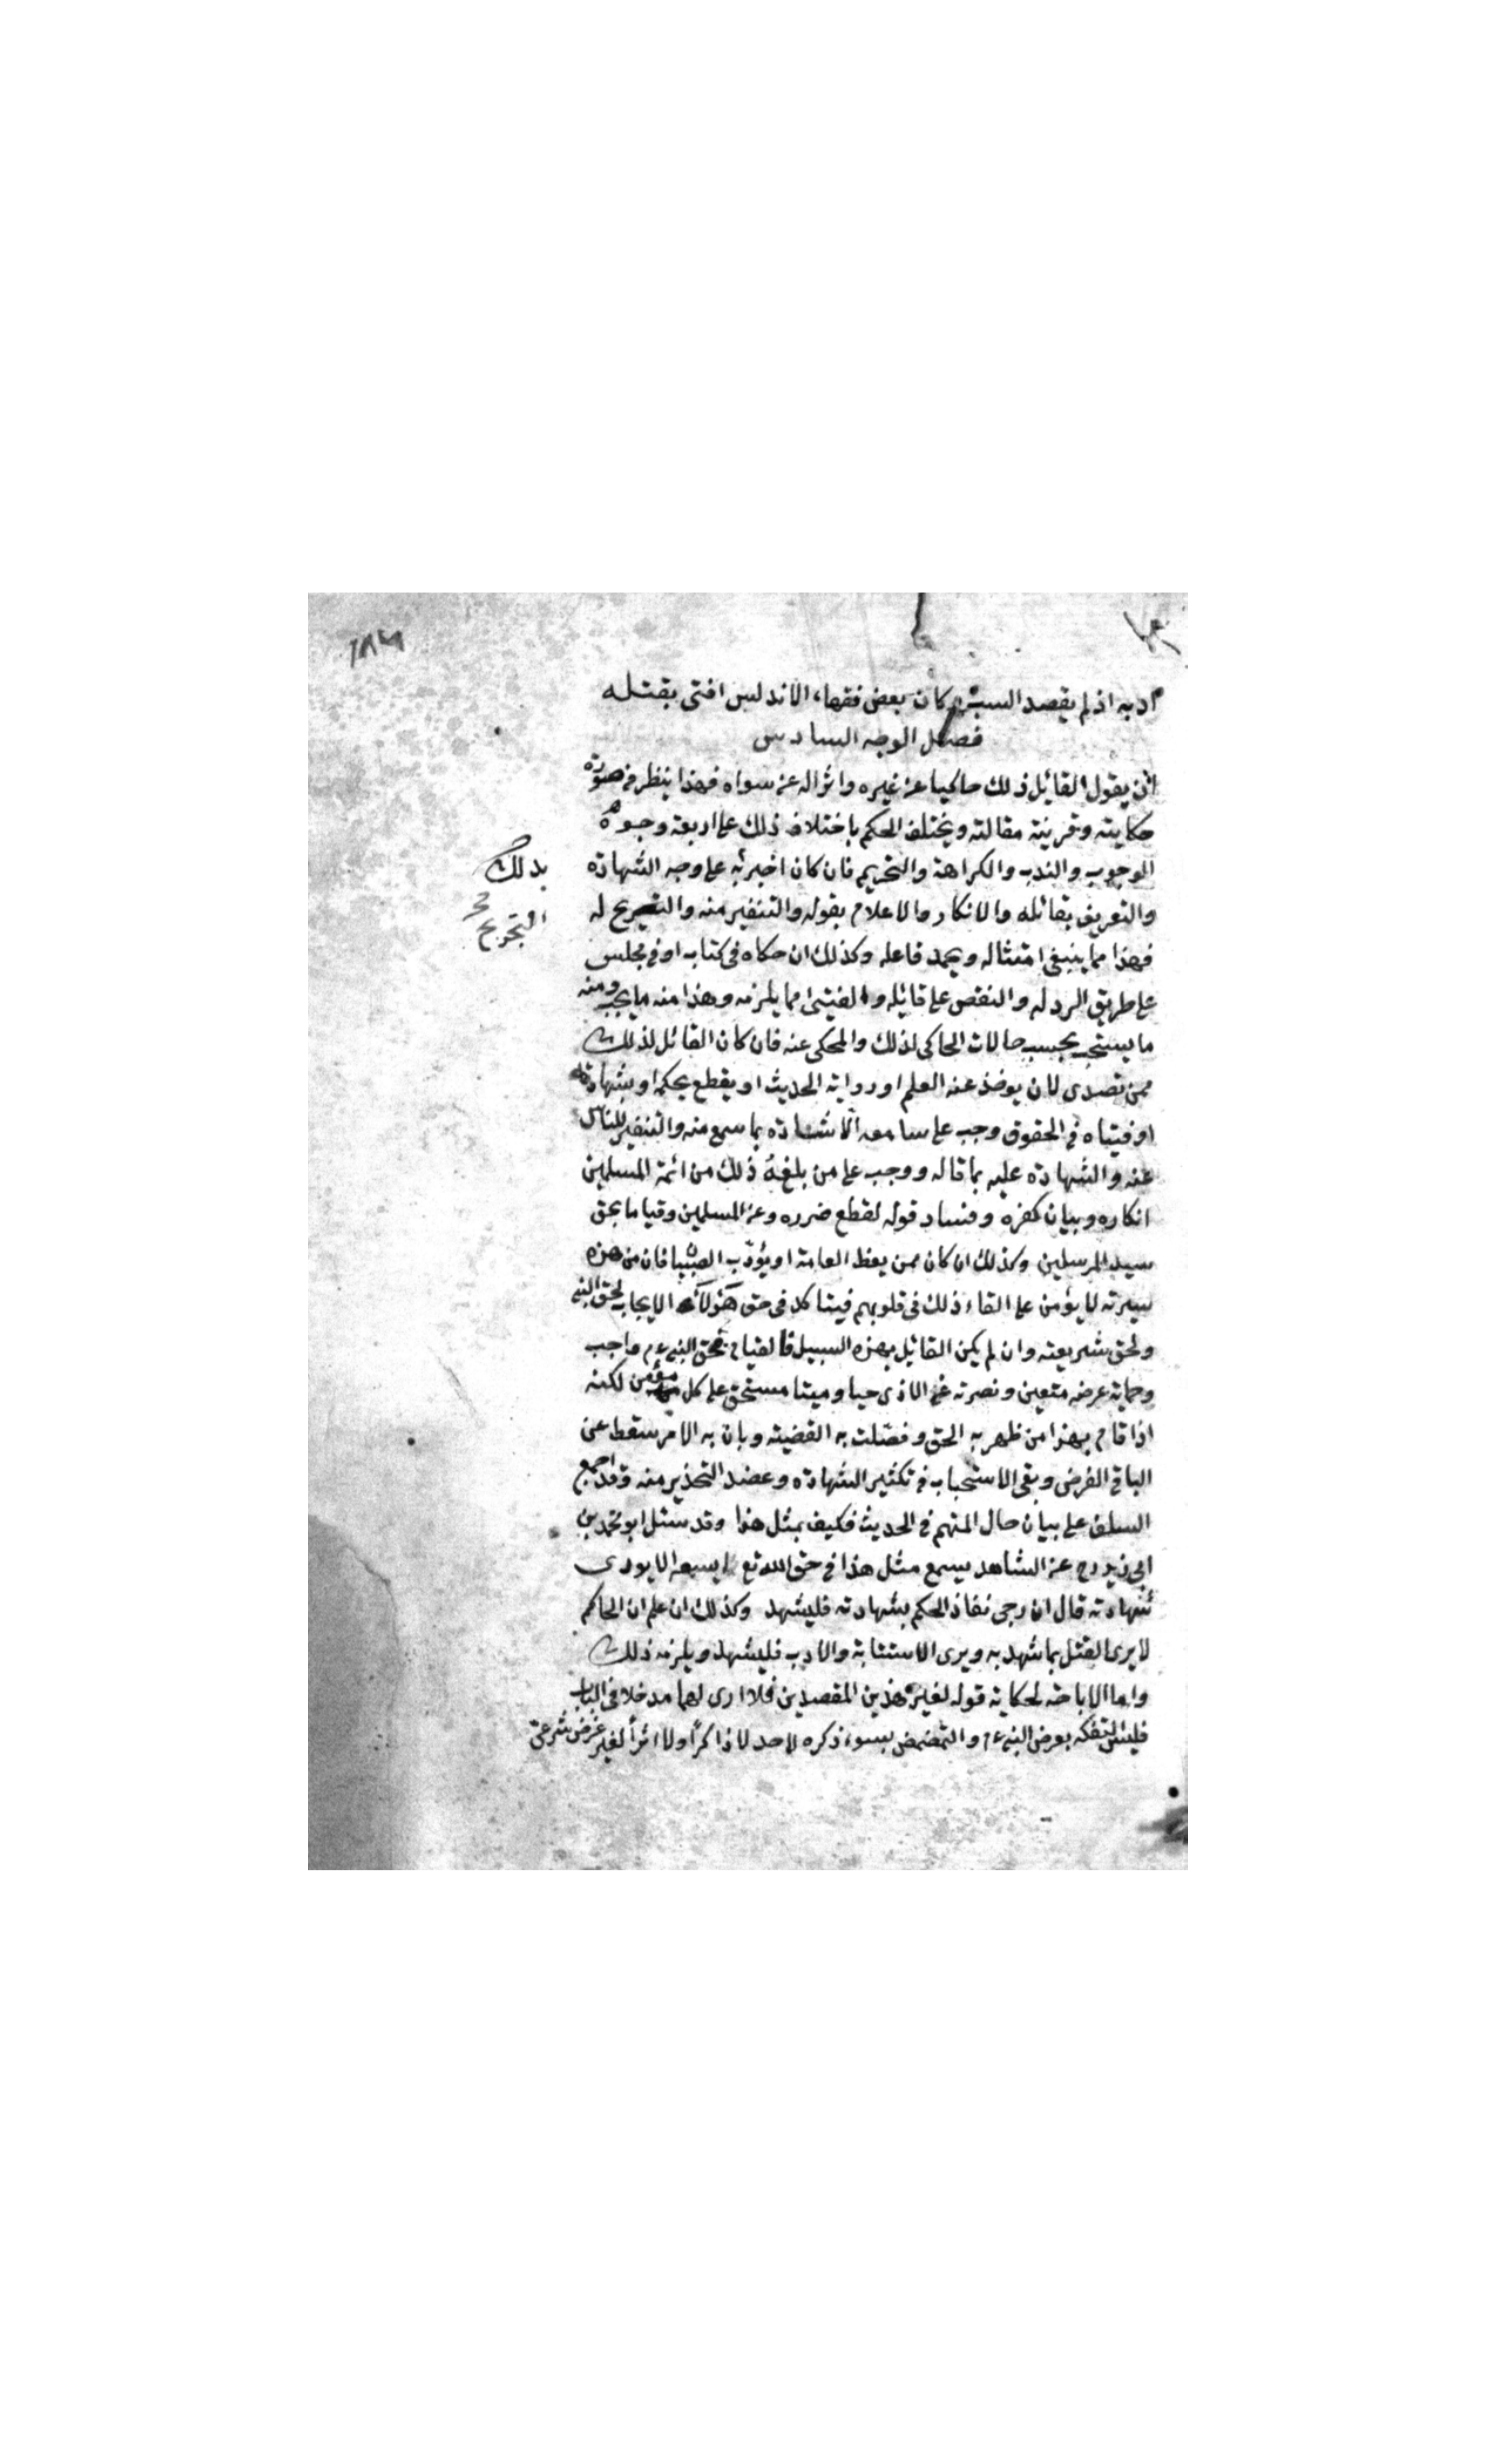 ١٨٦
ادبه اذ لم يقصد السب وكان بعض فقهاء الاندلس افتى بقتله
فصل الوجه السادس
ان يقول القائل ذلك حاكيا عن غيره واثراله عن سواه فهذا ينظر في صورة
حكايته وقرينة مقالته ويختلف الحكم باختلاف ذلك على اربعة وجوه
الوجوب والندب والكراهة والتحريم فان كان اخبر به على وجه الشهادة
والتعريف بقائله والانكار والاعلام بقوله والتنفير منه والتجريح له
فهذا مما ينبغي امتثاله ويحمد فاعله وكذلك ان حكاه في كتاب او في مجلس
على طريق الرد له والنقص على قائله والفتيا مما يلزمه وهذا منه ما يجب ومنه
ما يستحب بحسب حالات الحاكي لذلك والمحكي عنه فان كان القائل لذلك
ممن تصدى لان يوخذ عنه العلم او رواية الحديث او يقطع بحكمه او شهادته
او فتياه في الحقوق وجب على سامعه الاشادة بما سمع منه والتنفير للناس
عنه والشهادة عليه بما قاله ووجب على من بلغه ذلك من ائمة المسلمين
انكاره وبيان كفره وفساد قوله لقطع ضرره وعن المسلمين وقياما بحق
سيد المرسلين وكذلك ان كان ممن يعظ العامة او يؤدب الصبيان فان من هذه
سيرته لا يؤمن على القاء ذلك في قلوبهم فيتاكد في حق هؤلاء الايجاب لحق النبي
ولحق شريعته وان لم يكن القائل بهذه السبيل فالقيام بحق النبي عم واجب
وحماية عرضه متعين ونصرته عن الاذى حيا وميتا مستحق على كل مؤمن لكنه
اذا قام بهذا من ظهر به الحق وفصلت به القضية وبان به الامر سقط عن
الباقي الفرض وبقي الاستحباب في تكثير الشهادة وعضد التحذير منه وقد اجمع
السلف على بيان حال المتهم في الحديث فكيف بمثل هذا وقد سئل ابو محمد بن
ابي زيد رح عن الشاهد يسمع مثل هذا في حق الله تع ايسعه الا يودى
شهادته قال ان رجى نفاذ الحكم بشهادته فليشهد وكذلك ان علم ان الحاكم
لا يرى القتل بما شهد به ويرى الاستتابة والادب فليشهد ويلزمه ذلك
واما الاباحة لحكاية قوله لغير هذين المقصدين فلا ارى لهما مدخلا في الباب
فليس التفكه بعرض النبي عم والتمضمض بسوء ذكره لاحد لا ذاكرا ولا اثرا لغير غرض شرعي
بذلك
التجريح